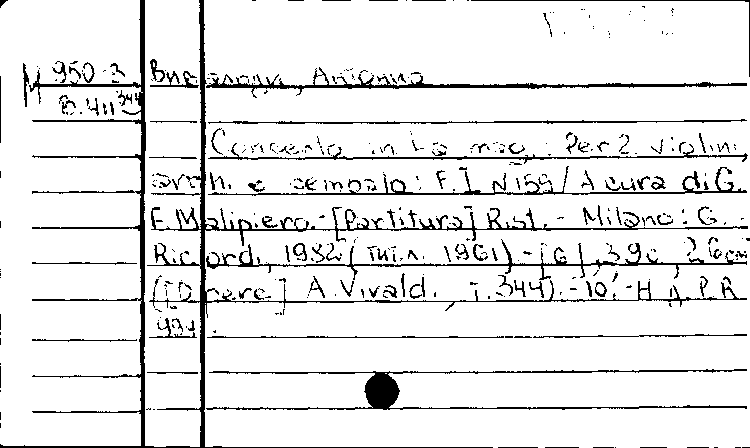 М 950-3 Вивальди, Антонио
В.411 344
Concerto in La mag.: Per 2 violini,
arch. e cembalo: F. I N 159 / A cura di G.
F. Malipiero. - [Partitura] Rist. - Milano: G.
Ricordi, 1982 (тит.л. 1961) - [6], 39 с., 26 cm
([Opere] A. Vivaldi., T. 344). - 10'. - Н. Д. P.R.
994.